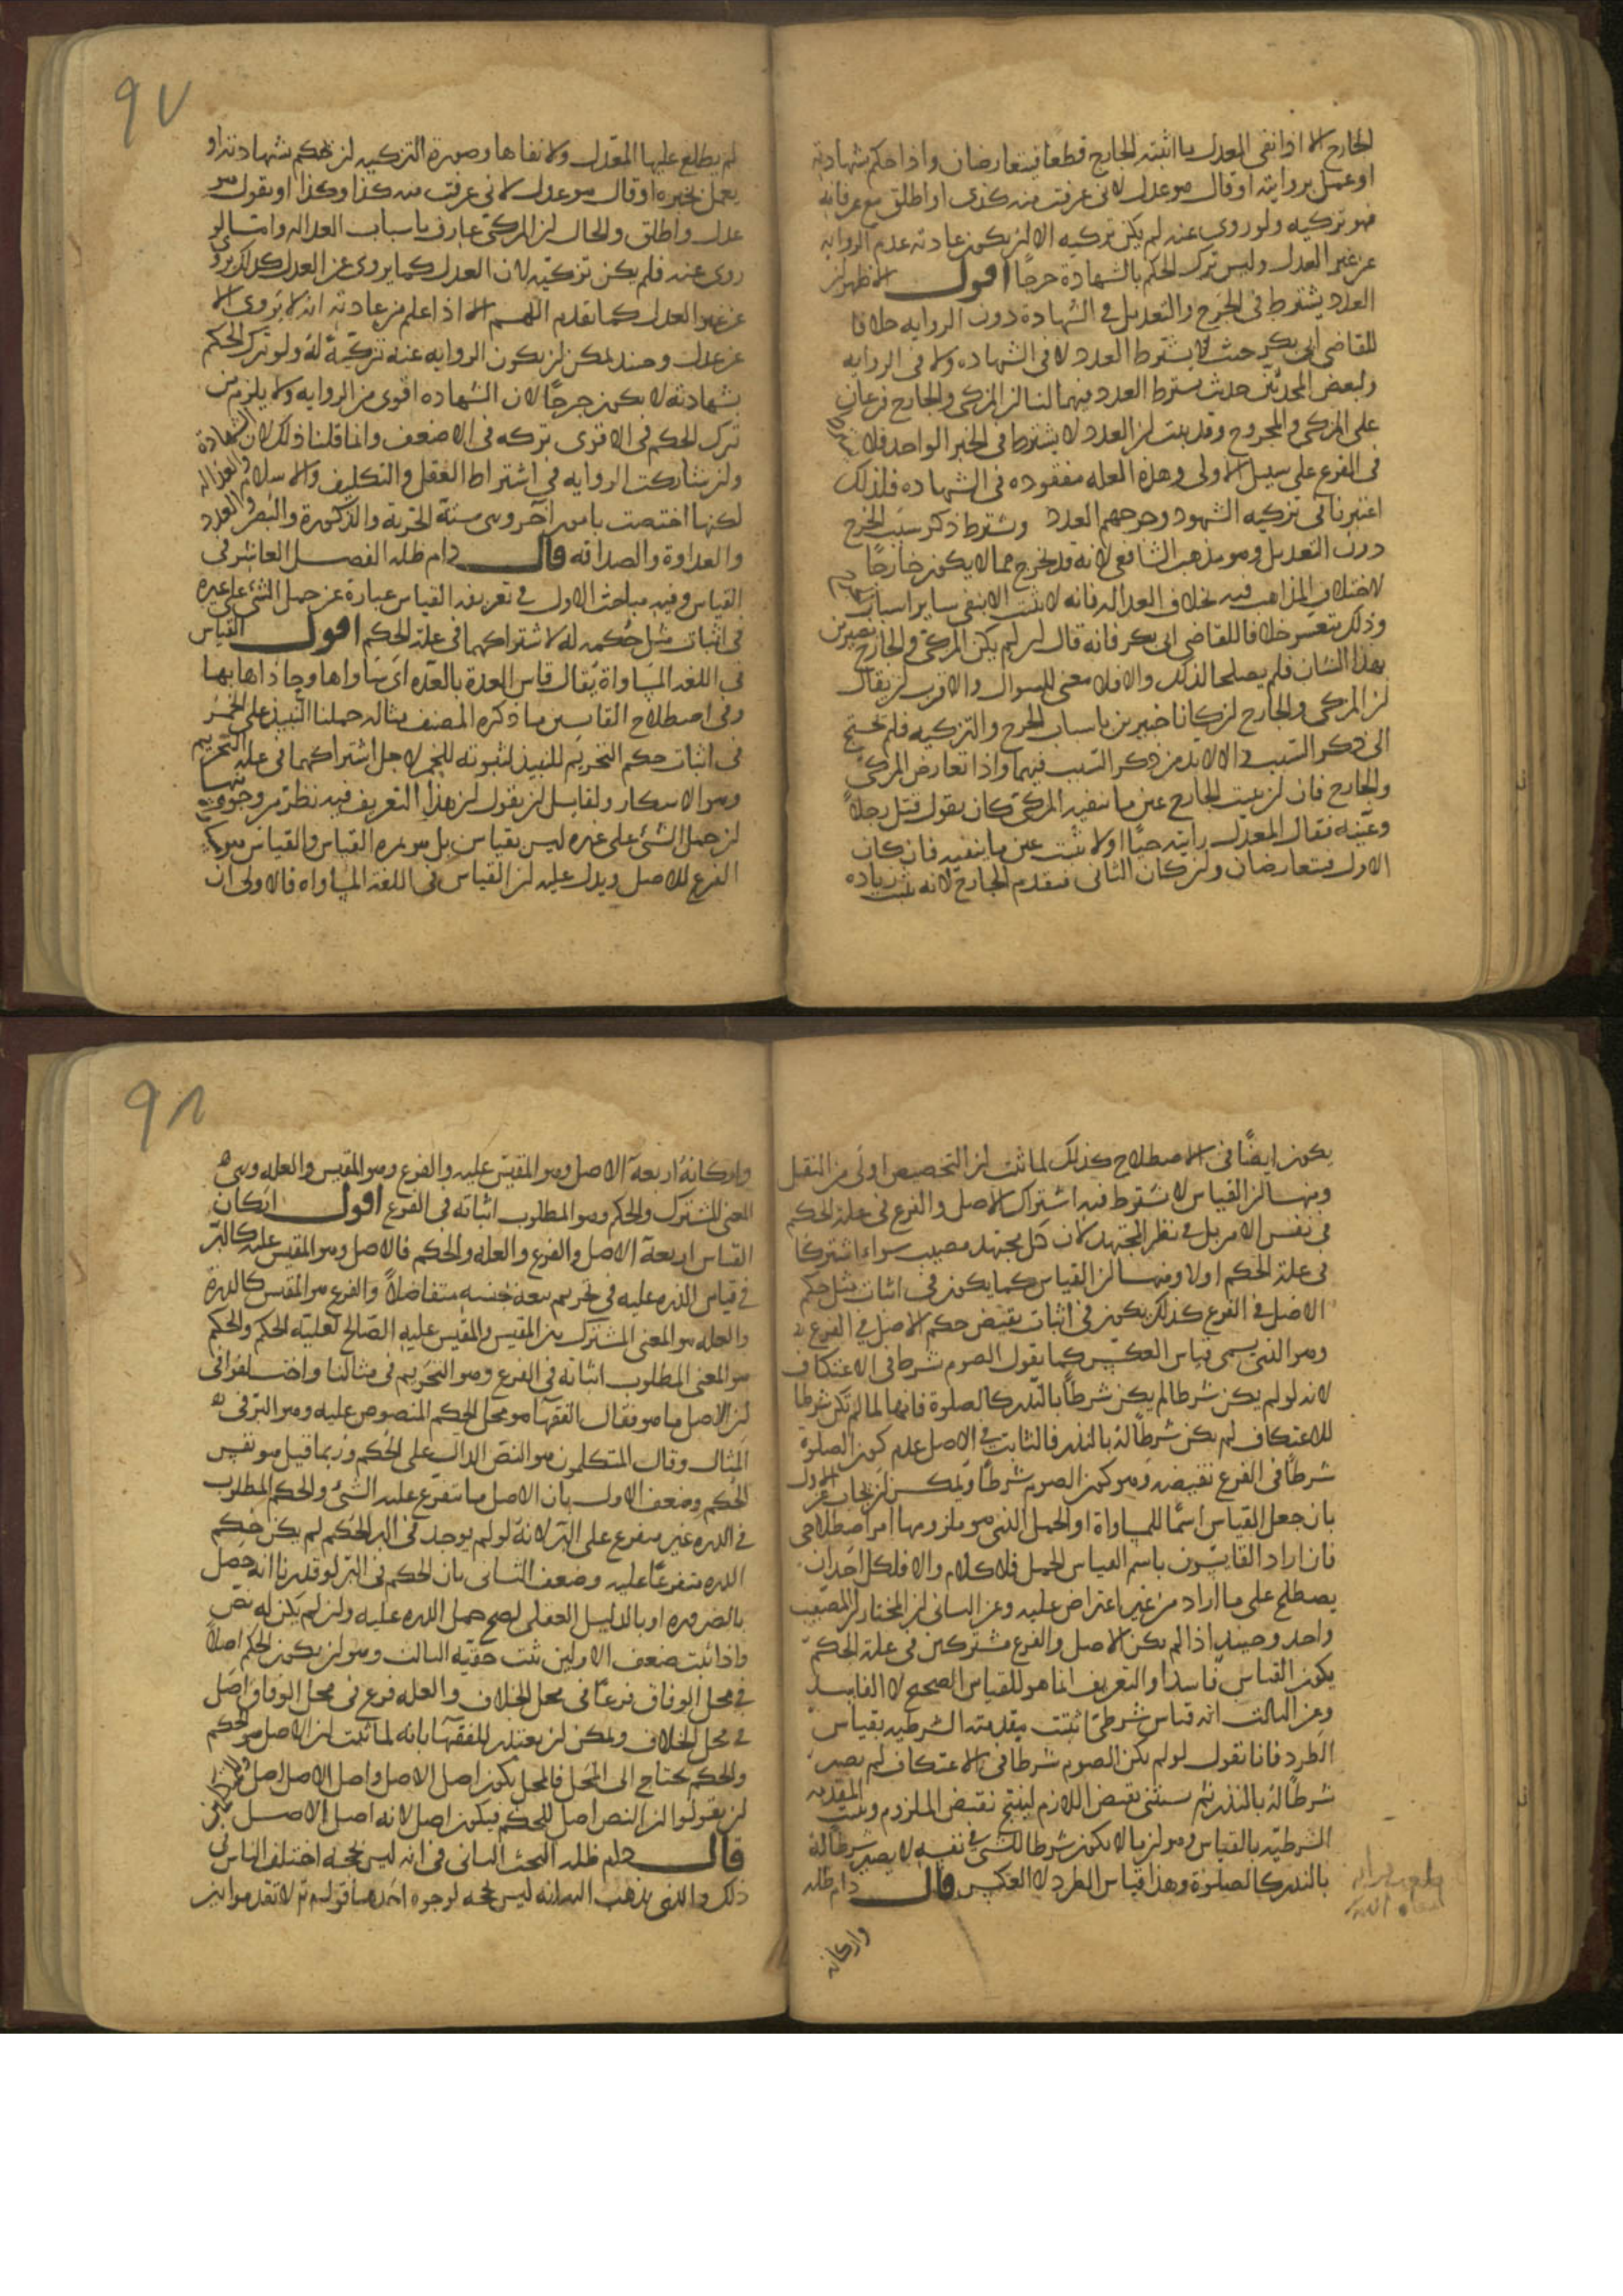 الجارح الا اذا نفى المعدل ما اثبته الجارح قطعا فيتعارضان واذا حكم بشهادته
او عمل بروايته او قال هو عدل لانى عرفت منه كذى او اطلق مع عرفانه
فهو تزكيه ولو روى عنه لم يكن تزكيه الا ان يكون عادته عدم الروايه
عن غير العدل وليس ترك الحكم بالشهادة جرحا اقول الاظهر ان
العدد يشترط فى الجرح والتعديل فى الشهادة دون الروايه خلافا
للقاضى ابى بكر حيث لا يشترط العدد لا فى الشهاده ولا فى الروايه
ولبعض المحدثين حيث شرط العدد فيهما لنا ان المزكى والجارح فرعان
على المزكى والمجروح وقد ثبت ان العدد لا يشترط فى الخبر الواحد فلا
فى الفرع على سبيل الاولى وهذه العله مفقوده فى الشهاده فلذلك
اعتبرنا فى تزكيه الشهود وجرحهم العدد ويشترط ذكر سبب الجرح
دون التعديل وهو مذهب الشافعى لانه قد يجرح بما لا يكون جارحا
لاختلاف المذاهب فيه بخلاف العداله فانه لا تثبت الا بنفى ساير اسباب
وذلك يتعسر خلافا للقاضى ابى بكر فانه قال ان لم يكن المزكى والجارح بصيرين
بهذا الشان فلم يصلحا لذلك والا فلا معنى للسوال والاقرب ان يقال
ان المزكى والجارح ان كانا خبيرين باسباب الجرح والتزكيه فلم يحتج
الى ذكر السبب والا لابد من ذكر السبب فيهما واذا تعارض المزكى
والجارح فان اثبت الجارح عين ما ينفيه المزكى كان يقول قتل رجلا
وعينه فقال المعدل رايته حيا اولا يثبت عين ما ينفيه فان كان
الاول فيتعارضان وان كان الثانى فيقدم الجارح لانه يثبت زياده
٩٧
لم يطلع عليها المعدل ولا نفاها وصورة التزكيه ان يحكم بشهادته او
يعمل بخبره او قال هو عدل لانى عرفت منه كذا وكذا او يقول هو
عدل واطلق والحال ان المزكى عارف باسباب العداله واما لو
روى عنه فلم يكن تزكيته لان العدل كما يروى عن العدل كذلك يروى
عن غير العدل كما تقدم اللهم الا اذا علم من عادته انه لا يروى الا
عن عدل وحينئذ يمكن ان يكون الروايه عنه تزكية له ولو ترك الحكم
بشهادته لا يكون جرحا لان الشهاده اقوى من الروايه ولا يلزم من
ترك الحكم فى الاقوى تركه فى الاضعف وانما قلنا ذلك لان الشهادة
وان شاركت الروايه فى اشتراط العقل والتكليف والاسلام والعداله
لكنها اختصت بامور اخر وهى ستة الحرية والذكورة والبصر والعدد
والعداوة والصداقه قال دام ظله الفصل العاشر فى
القياس وفيه مباحث الاول فى تعريفه القياس عبارة عن حمل الشئ على غيره
فى اثبات مثل حكمه له لاشتراكهما فى علة الحكم اقول القياس
فى اللغه المساواة يقال قاس القدة بالقدة اى ساواها وحاذاها بها
وفى اصطلاح القايسين ما ذكره المصنف مثاله حملنا النبيذ على الخمر
فى اثبات حكم التحريم للنبيذ لثبوته للخمر لاجل اشتراكهما فى علة التحريم
وهو الاسكار ولقايل ان يقول ان هذا التعريف فيه نظر من وجوه منها
ان حمل الشئ على غيره ليس بقياس بل هو ثمره القياس والقياس هو
الفرع للاصل ويدل عليه ان القياس فى اللغة المساواه فالاولى ان
يكون ايضا فى الاصطلاح كذلك لما ثبت ان التخصيص اولى من النقل
ومنها ان القياس لا يشترط فيه اشتراك الاصل والفرع فى علة الحكم
فى نفس الامر بل فى نظر المجتهد لان كل مجتهد مصيب سواء اشتركا
فى علة الحكم اولا ومنها ان القياس كما يكون فى اثبات مثل حكم
الاصل فى الفرع كذلك يكون فى اثبات نقيض حكم الاصل فى الفرع
وهو الذى يسمى قياس العكس كما يقول الصوم شرط فى الاعتكاف
لانه لو لم يكن شرطا لم يكن شرطا بالنذر كالصلوة فانها لما لم تكن شرطا
للاعتكاف لم يكن شرطا له بالنذر فالثابت فى الاصل عدم كون الصلوة
شرطا فى الفرع نقيضه وهو كون الصوم شرطا ويمكن ان يجاب عن الاول
بان جعل القياس اسما للمساواة او الحمل الذى هو ملزومها امر اصطلاحى
فان اراد القايسون باسم القياس الحمل فلا كلام والا فلكل احد ان
يصطلح على ما اراد من غير اعتراض عليه وعن الثانى ان المختار ان المصيب
واحد وحينئذ اذا لم يكن الاصل والفرع مشتركين فى علة الحكم
يكون القياس فاسدا والتعريف انما هو للقياس الصحيح لا الفاسد
وعن الثالث انه قياس شرطى اثبتت مقدمته الشرطيه بقياس
الطرد فانا نقول لو لم يكن الصوم شرطا فى الاعتكاف لم يصر
شرطا له بالنذر ثم نستثنى نقيض اللازم لينتج نقيض الملزوم ونثبت المقدمه
الشرطية بالقياس وهو ان ما لا يكون شرطا لشئ فى نفسه لا يصير شرطا له
بالنذر كالصلوة وهذا قياس الطرد لا العكس قال دام ظله
واركانه
٩٨
واركانه اربعة الاصل وهو المقيس عليه والفرع وهو المقيس والعله وهى
المعنى المشترك والحكم وهو المطلوب اثباته فى الفرع اقول اركان
القياس اربعة الاصل والفرع والعله والحكم فالاصل وهو المقيس عليه كالبر
فى قياس الذره عليه فى تحريم بيعه بجنسه متفاضلا والفرع هو المقيس كالذرة
والعله هو المعنى المشترك بين المقيس والمقيس عليه الصالح لعلية الحكم والحكم
هو المعنى المطلوب اثباته فى الفرع وهو التحريم فى مثالنا واختلفوا فى
ان الاصل ما هو فقال الفقها هو محل الحكم المنصوص عليه وهو البر فى
المثال وقال المتكلمون هو النص الدال على الحكم وربما قيل هو نفس
الحكم وضعف الاول بان الاصل ما يتفرع عليه الشئ والحكم المطلوب
فى الذره غير متفرع على البر لانه لو لم يوجد فى البر الحكم لم يكن حكم
الذره متفرعا عليه وضعف الثانى بان الحكم فى البر لو قدرنا انه حصل
بالضروره او بالدليل العقلى لصح حمل الذره عليه وان لم يكن له نص
واذا ثبت ضعف الاولين ثبت حقية الثالث وهو ان يكون الحكم اصلا
فى محل الوفاق فرعا فى محل الخلاف والعله فرع فى محل الوفاق اصل
فى محل الخلاف ويمكن ان يعتذر للفقها بانه لما ثبت ان الاصل هو الحكم
والحكم يحتاج الى المحل فالمحل يكون اصل الاصل واصل الاصل اصل
ان يقولوا ان النص اصل للحكم فيكون اصلا لانه اصل الاصل
قال دام ظله البحث الثانى فى انه ليس بحجه اختلف الناس فى
ذلك والذى نذهب اليه انه ليس بحجه لوجوه احدها قوله تع لا تقدموا بين